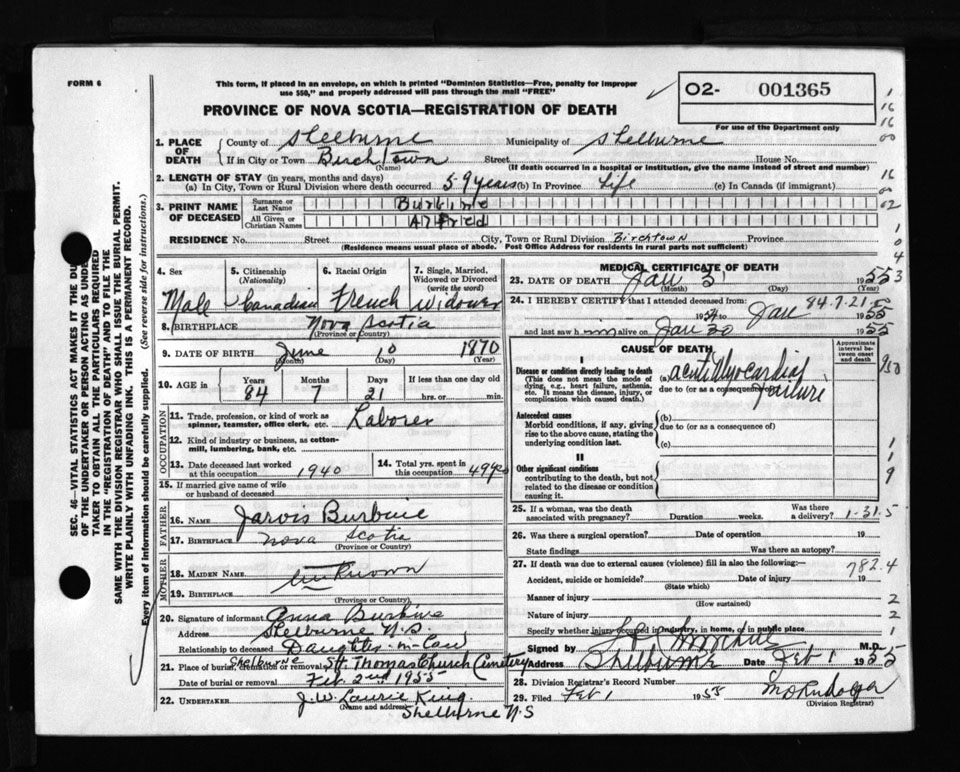 FORM 6
This form, if placed in an envelope, on which is printed "Dominion Statistics—Free, penalty for improper
use $50," and properly addressed will pass through the mail "FREE"
O2- 001365
PROVINCE OF NOVA SCOTIA—REGISTRATION OF DEATH
For use of the Department only
1. PLACE OF DEATH County of Shelburne Municipality of Shelburne
If in City or Town Birchtown Street House No.
(Name) (If death occurred in a hospital or institution, give the name instead of street and number)
2. LENGTH OF STAY (in years, months and days)
(a) In City, Town or Rural Division where death occurred 59 years (b) In Province Life (c) In Canada (if immigrant)
3. PRINT NAME OF DECEASED Surname or Last Name Burbine
All Given or Christian Names Alfred
RESIDENCE No. Street City, Town or Rural Division Birchtown Province
(Residence means usual place of abode. Post Office Address for residents in rural parts not sufficient)
4. Sex Male
5. Citizenship (Nationality) Canadian
6. Racial Origin French
7. Single, Married, Widowed or Divorced (write the word) Widower
8. BIRTHPLACE Nova Scotia
(Province or Country)
9. DATE OF BIRTH June 10 1870
(Month) (Day) (Year)
10. AGE in Years Months Days If less than one day old
84 7 21 hrs. or min.
OCCUPATION
11. Trade, profession or kind of work as spinner, teamster, office clerk, etc. Laborer
12. Kind of industry or business, as cotton-mill, lumbering, bank, etc.
13. Date deceased last worked at this occupation 1940
14. Total yrs. spent in this occupation 49
15. If married give name of wife or husband of deceased
FATHER
16. NAME Jarvis Burbine
17. BIRTHPLACE Nova Scotia
(Province or Country)
MOTHER
18. MAIDEN NAME Unknown
19. BIRTHPLACE
(Province or Country)
20. Signature of informant Anna Burbine
Address Shelburne N.S
Relationship to deceased Daughter-in-Law
21. Place of burial, cremation or removal Shelburne St. Thomas Church Cemetery
Date of burial or removal Feb. 2nd 1955
22. UNDERTAKER J. W. Laurie King
(Name and address) Shelburne N.S
MEDICAL CERTIFICATE OF DEATH
23. DATE OF DEATH Jan 31 1955
(Month) (Day) (Year)
24. I HEREBY CERTIFY that I attended deceased from:
84.7.21
1954 to Jan 1955
and last saw him alive on Jan 30 1955
CAUSE OF DEATH
Approximate interval between onset and death
I
Disease or condition directly leading to death
(This does not mean the mode of dying, e.g., heart failure, asthenia, etc. It means the disease, injury, or complication which caused death.)
(a) acute Myocardial failure
due to (or as a consequence of)
Antecedent causes
Morbid conditions, if any, giving rise to the above cause, stating the underlying condition last.
(b)
due to (or as a consequence of)
(c)
II
Other significant conditions
contributing to the death, but not related to the disease or condition causing it.
25. If a woman, was the death associated with pregnancy? Duration weeks. Was there a delivery?
1-31.5
26. Was there a surgical operation? Date of operation 19
State findings Was there an autopsy?
27. If death was due to external causes (violence) fill in also the following:—
782.4
Accident, suicide or homicide? Date of injury 19
(State which)
Manner of injury
(How sustained)
Nature of injury
Specify whether injury occurred in industry, in home, or in public place
Signed by M.D.
Address Shelburne Date Feb 1 1955
28. Division Registrar's Record Number
29. Filed Feb 1 1955
(Division Registrar)
SEC. 46—VITAL STATISTICS ACT MAKES IT THE DUTY
OF THE UNDERTAKER OR PERSON ACTING AS UNDERTAKER
TO OBTAIN ALL THE PARTICULARS REQUIRED
IN THE "REGISTRATION OF DEATH" AND TO FILE THE
SAME WITH THE DIVISION REGISTRAR WHO SHALL ISSUE THE BURIAL PERMIT.
WRITE PLAINLY WITH UNFADING INK. THIS IS A PERMANENT RECORD.
Every item of information should be carefully supplied. (See reverse side for instructions.)